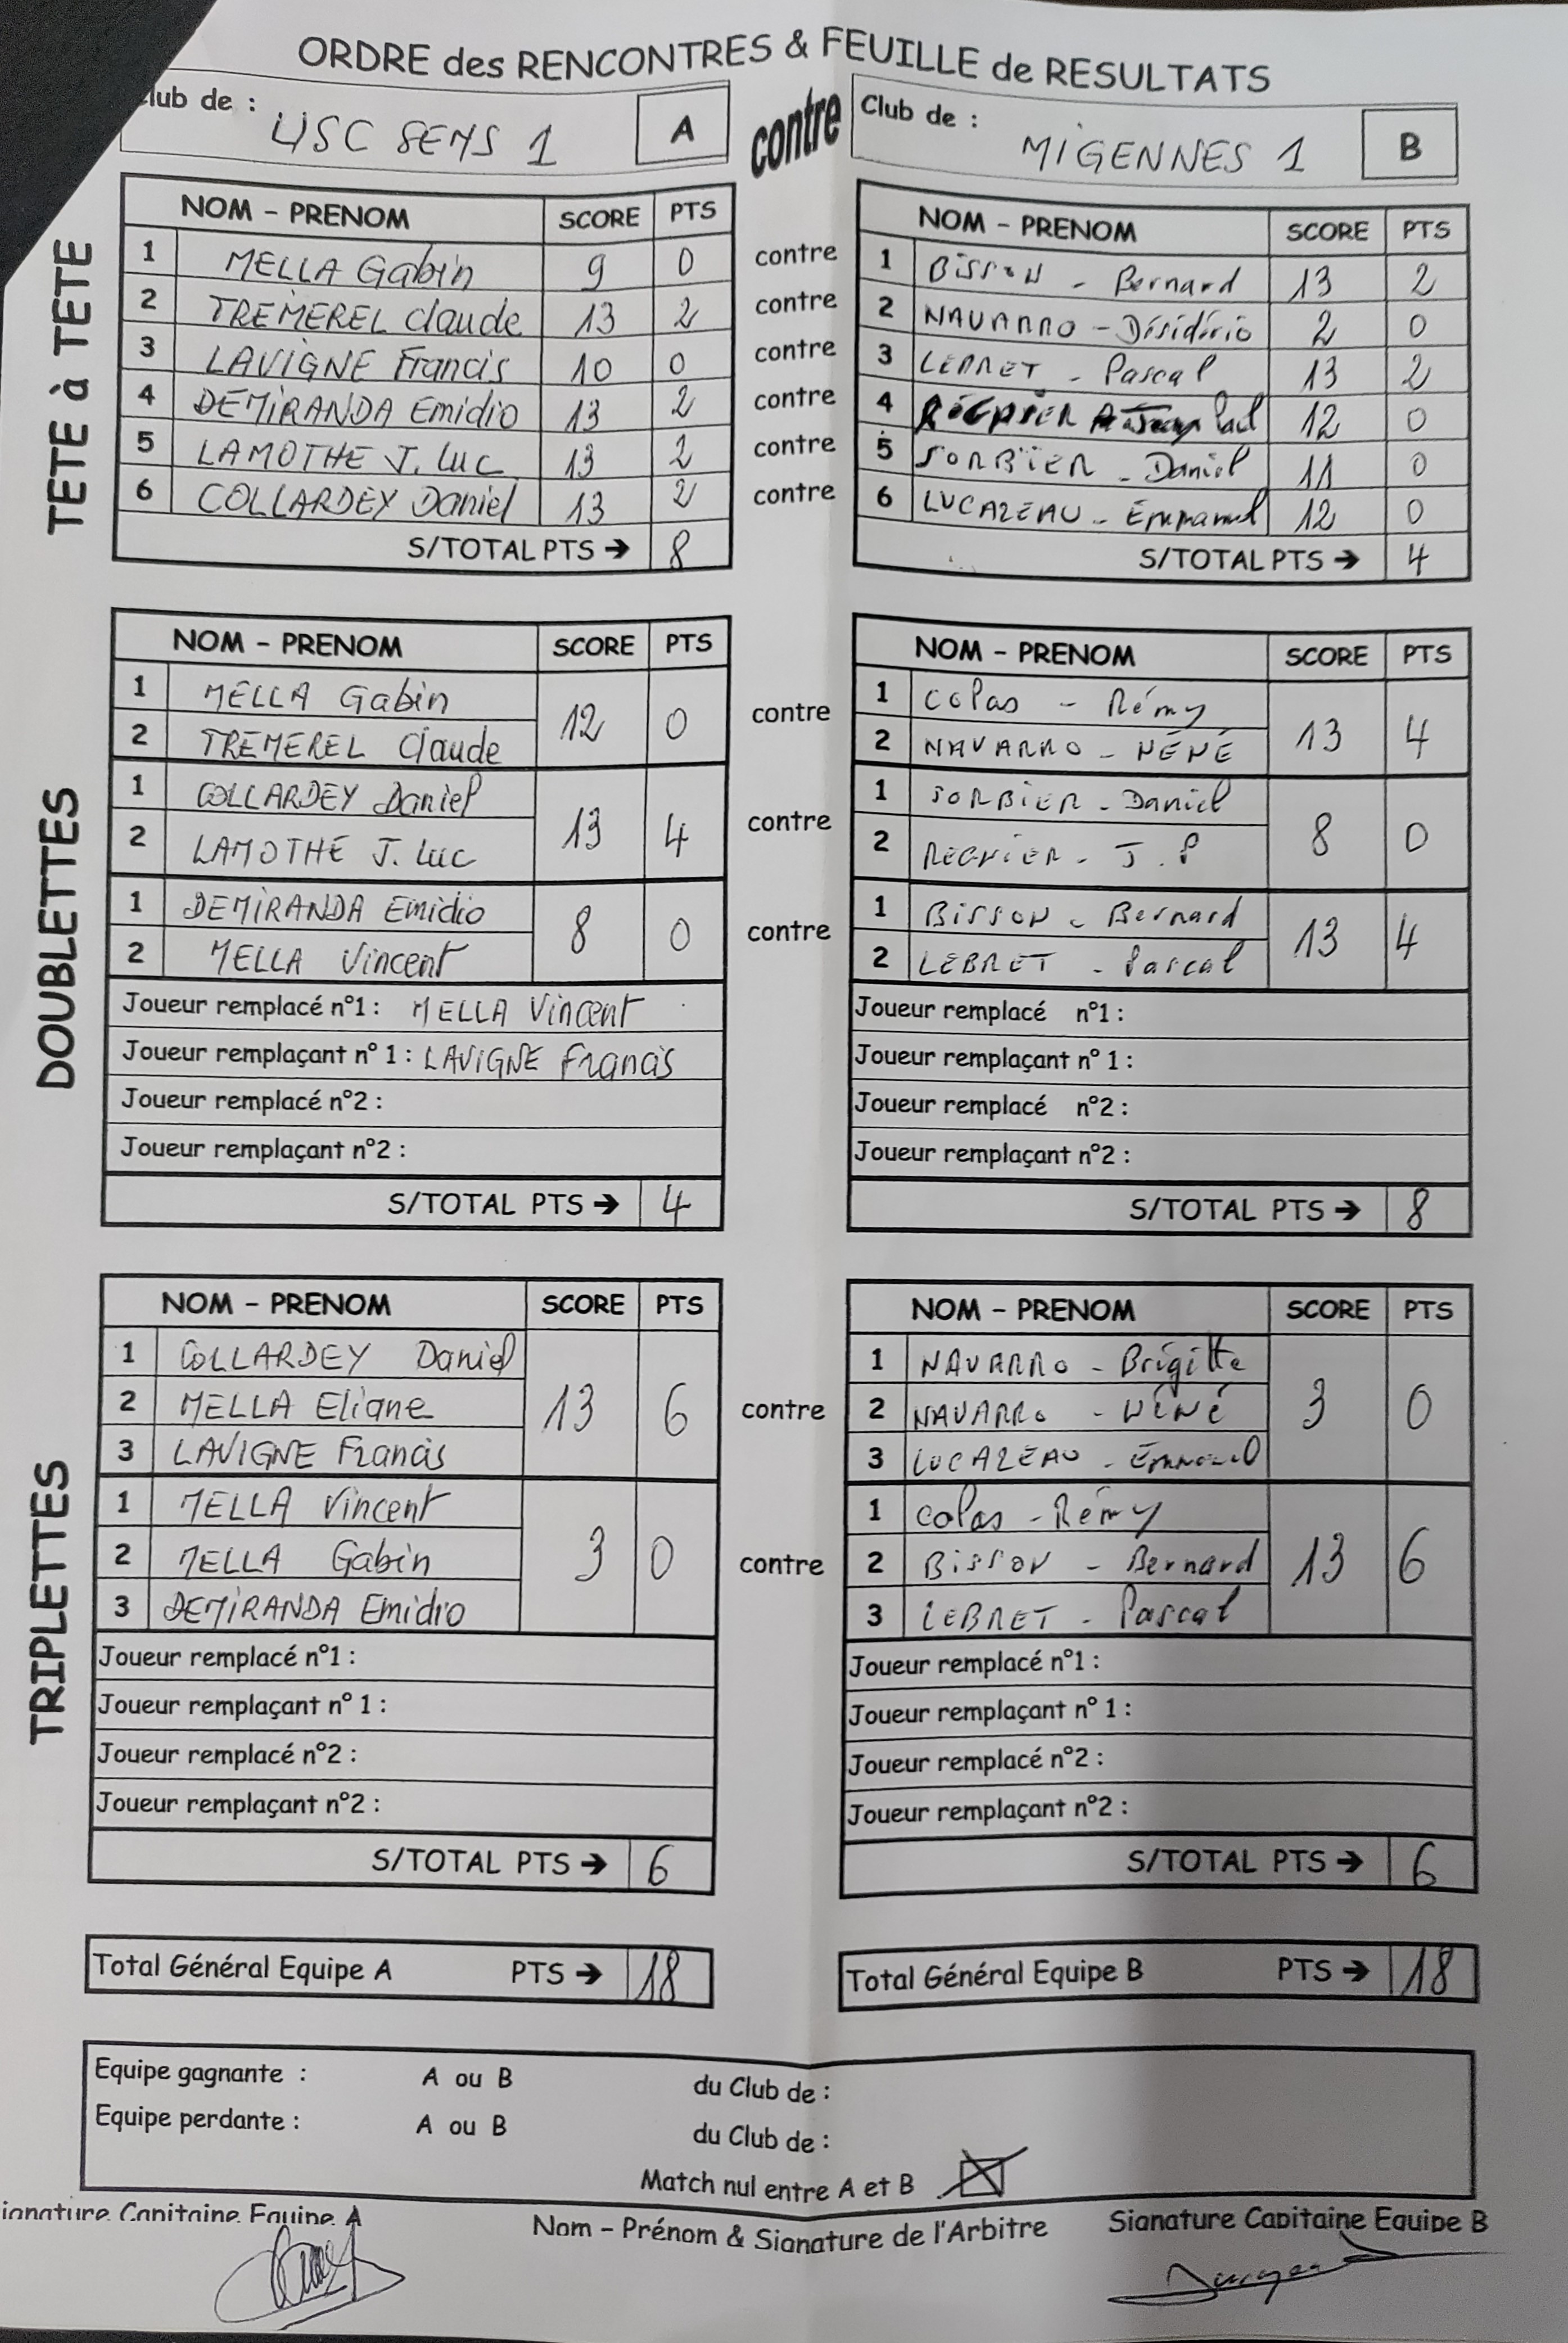 ORDRE des RENCONTRES & FEUILLE de RESULTATS
lub de : USC SENS 1 A contre Club de : MIGENNES 1 B
TETE à TETE
NOM - PRENOM SCORE PTS NOM - PRENOM SCORE PTS
1 MELLA Gabin 9 0 contre 1 BISSON - Bernard 13 2
2 TREMEREL Claude 13 2 contre 2 NAVARRO - Désidério 2 0
3 LAVIGNE Francis 10 0 contre 3 LEBRET - Pascal 13 2
4 DEMIRANDA Emidio 13 2 contre 4 REGNIER 12 0
5 LAMOTHE J. Luc 13 2 contre 5 SORBIER - Daniel 11 0
6 COLLARDEY Daniel 13 2 contre 6 LUCAZEAU - Emmanuel 12 0
S/TOTAL PTS → 8 S/TOTAL PTS → 4
DOUBLETTES
NOM - PRENOM SCORE PTS NOM - PRENOM SCORE PTS
1 MELLA Gabin 12 0 contre 1 Colas - Rémy 13 4
2 TREMEREL Claude 2 NAVARRO - NÉNÉ
1 COLLARDEY Daniel 13 4 contre 1 SORBIER - Daniel 8 0
2 LAMOTHE J. Luc 2 REGNIER - J.P
1 DEMIRANDA Emidio 8 0 contre 1 BISSON - Bernard 13 4
2 MELLA Vincent 2 LEBRET - Pascal
Joueur remplacé n°1 : MELLA Vincent Joueur remplacé n°1 :
Joueur remplaçant n° 1 : LAVIGNE Francis Joueur remplaçant n° 1 :
Joueur remplacé n°2 : Joueur remplacé n°2 :
Joueur remplaçant n°2 : Joueur remplaçant n°2 :
S/TOTAL PTS → 4 S/TOTAL PTS → 8
TRIPLETTES
NOM - PRENOM SCORE PTS NOM - PRENOM SCORE PTS
1 COLLARDEY Daniel 1 NAVARRO - Brigitte
2 MELLA Eliane 13 6 contre 2 NAVARRO - NÉNÉ 3 0
3 LAVIGNE Francis 3 LUCAZEAU - Emmanuel
1 MELLA Vincent 1 Colas - Rémy
2 MELLA Gabin 3 0 contre 2 BISSON - Bernard 13 6
3 DEMIRANDA Emidio 3 LEBRET - Pascal
Joueur remplacé n°1 : Joueur remplacé n°1 :
Joueur remplaçant n° 1 : Joueur remplaçant n° 1 :
Joueur remplacé n°2 : Joueur remplacé n°2 :
Joueur remplaçant n°2 : Joueur remplaçant n°2 :
S/TOTAL PTS → 6 S/TOTAL PTS → 6
Total Général Equipe A PTS → 18 Total Général Equipe B PTS → 18
Equipe gagnante : A ou B du Club de :
Equipe perdante : A ou B du Club de :
Match nul entre A et B
ignature Capitaine Equipe A Nom - Prénom & Signature de l'Arbitre Signature Capitaine Equipe B